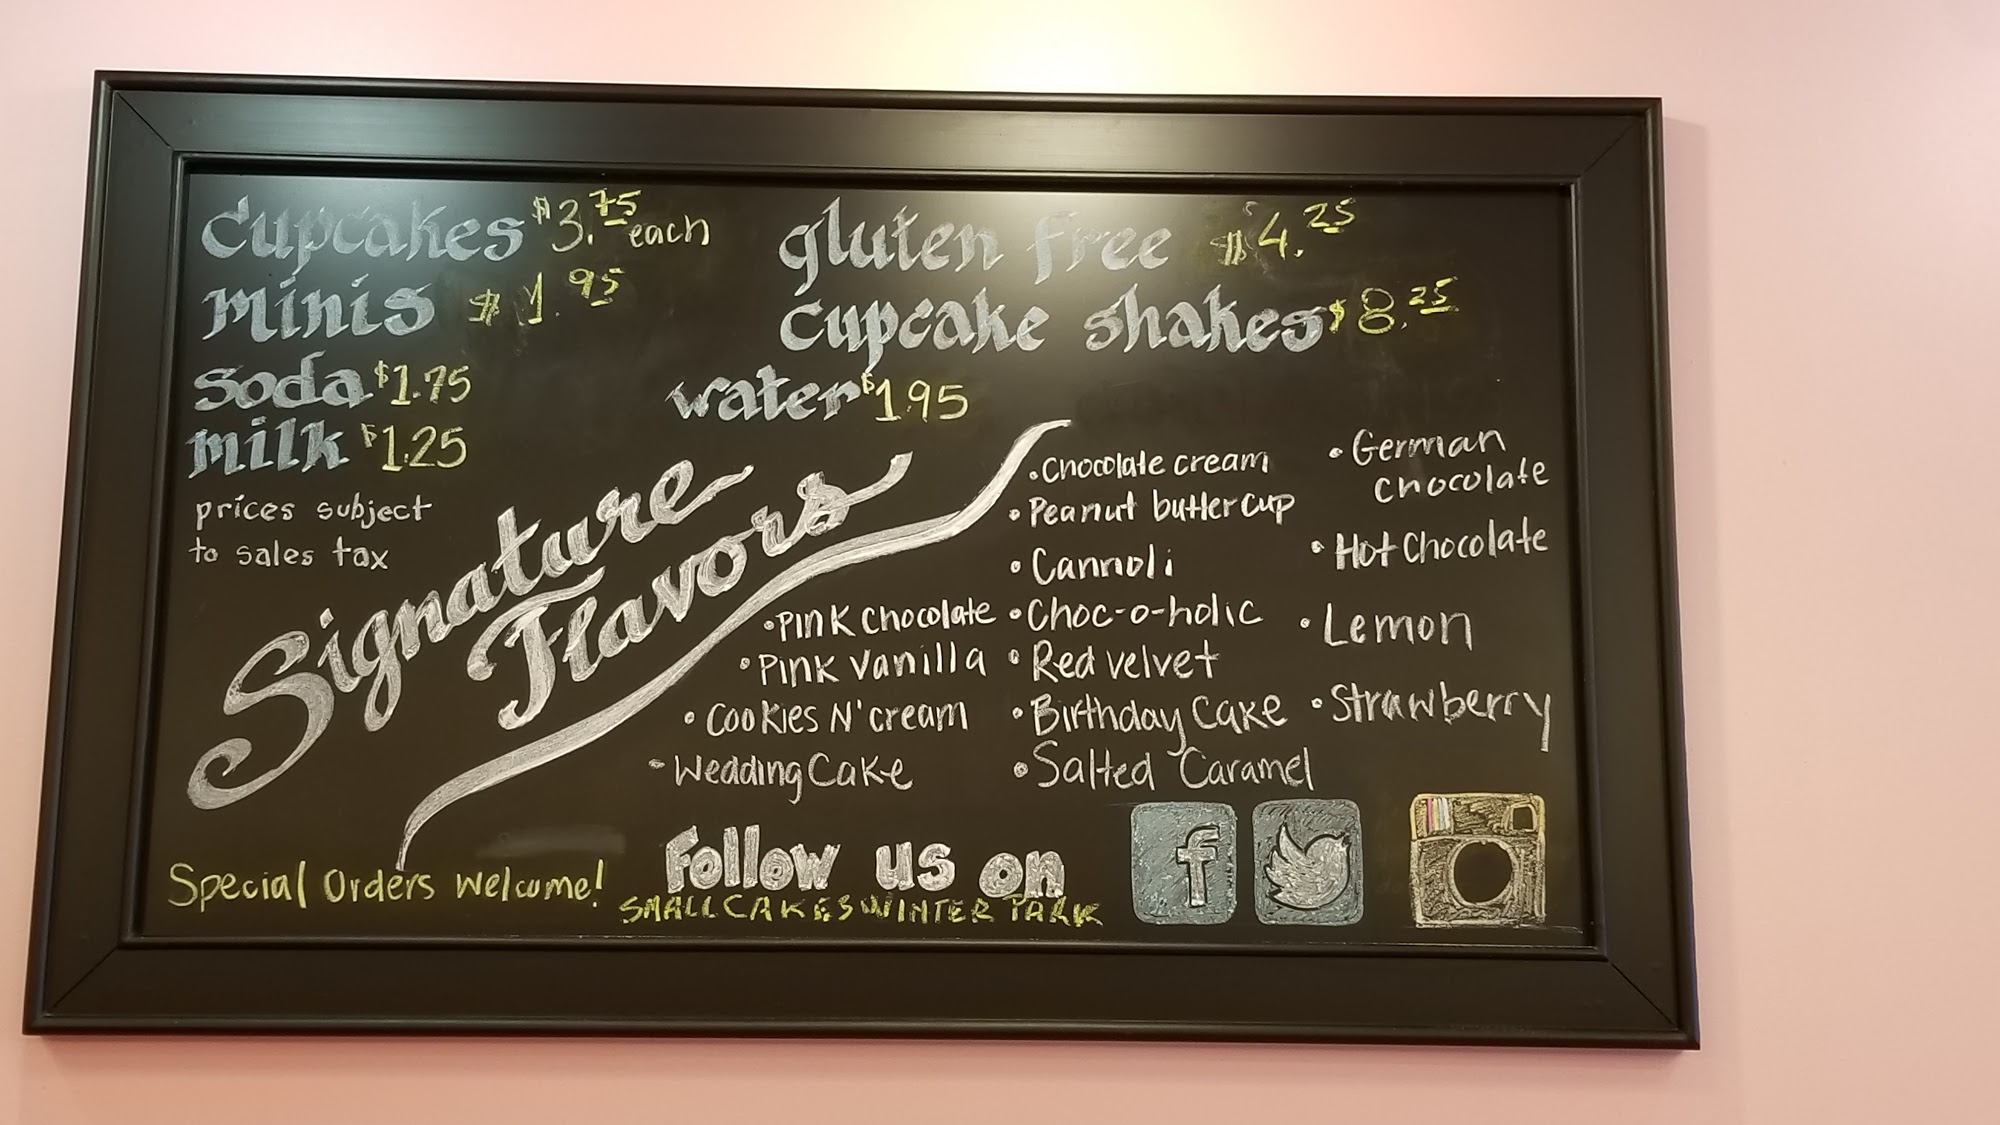 Cupcakes $3.75 each
minis $1.95
soda $1.75
milk $1.25
prices subject
to sales tax
gluten free $4.25
cupcake shakes $8.25
water $1.95
Signature
Flavors
• Pink Chocolate
• Pink Vanilla
• Cookies N' cream
• Wedding Cake
• Chocolate cream
• Peanut butter cup
• Cannoli
• Choc-o-holic
• Red velvet
• Birthday Cake
• Salted Caramel
• German
chocolate
• Hot Chocolate
• Lemon
• Strawberry
Special Orders Welcome!
Follow us on
SMALLCAKESWINTER PARK
f